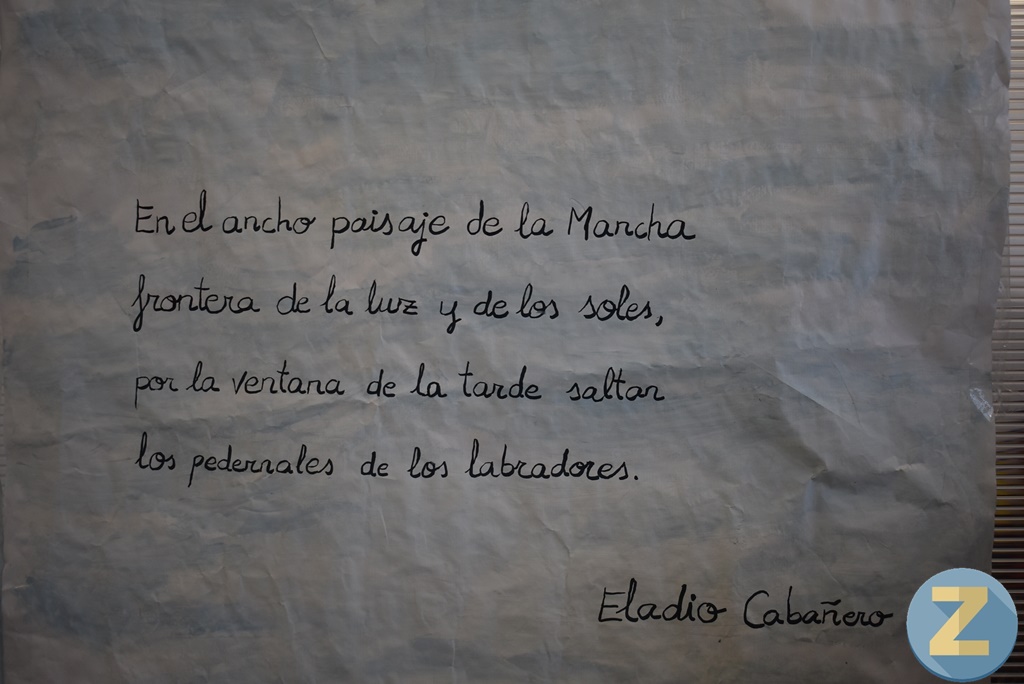 En el ancho paisaje de la Mancha
frontera de la luz y de los soles,
por la ventana de la tarde saltan
los pedernales de los labradores.
Eladio Cabañero
Z